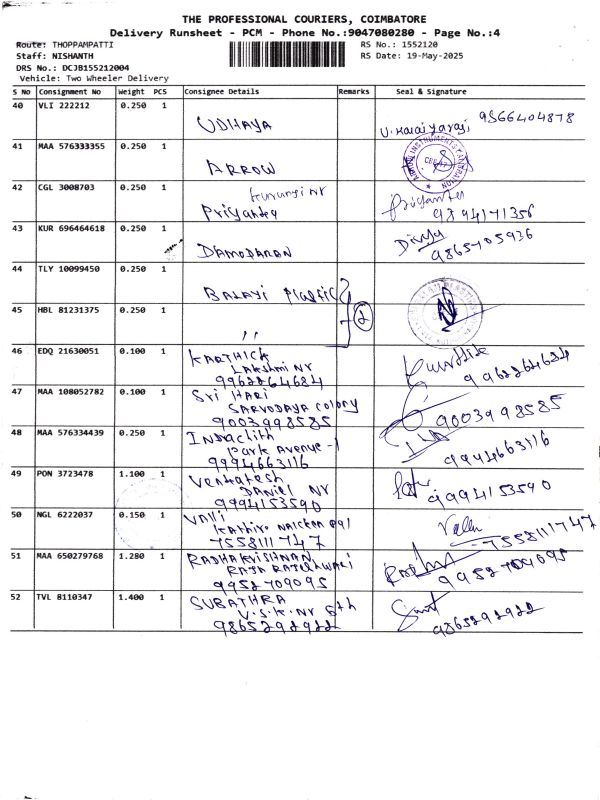 THE PROFESSIONAL COURIERS, COIMBATORE
Delivery Runsheet - PCM - Phone No.:9047080280 - Page No.:4
Route: THOPPAMPATTI RS No.: 1552120
Staff: NISHANTH RS Date: 19-May-2025
DRS No.: DCJB155212004
Vehicle: Two Wheeler Delivery
S No Consignment No Weight PCS Consignee Details Remarks Seal & Signature
40 VLI 222212 0.250 1
UDHAYA 9566404878
41 MAA 576333355 0.250 1
ARROW
42 CGL 3008703 0.250 1
Priyanka 9894171356
43 KUR 696464618 0.250 1
DAMODARAN Divya
9865705936
44 TLY 10099450 0.250 1
BALAYI Plastic
45 HBL 81231375 0.250 1
,, 2
46 EDQ 21630051 0.100 1 KARTHICK
LAKSHMI NR
9962264684 9962264684
47 MAA 108052782 0.100 1 Sri HARI
SARVODAYA colony
9003998585 9003998585
48 MAA 576334439 0.250 1
Park Avenue-1
9994663116 9994663116
49 PON 3723478 1.100 1 Venkatesh
DANIEL NR
9994153590 9994153590
50 NGL 6222037 0.150 1 Valli
7558111747 7558111747
51 MAA 650279768 1.280 1 RADHAKRISHNAN
9952709095 9952709095
52 TVL 8110347 1.400 1 SUBATHRA
V.S.K. Nr 6th
9865292922 9865292922